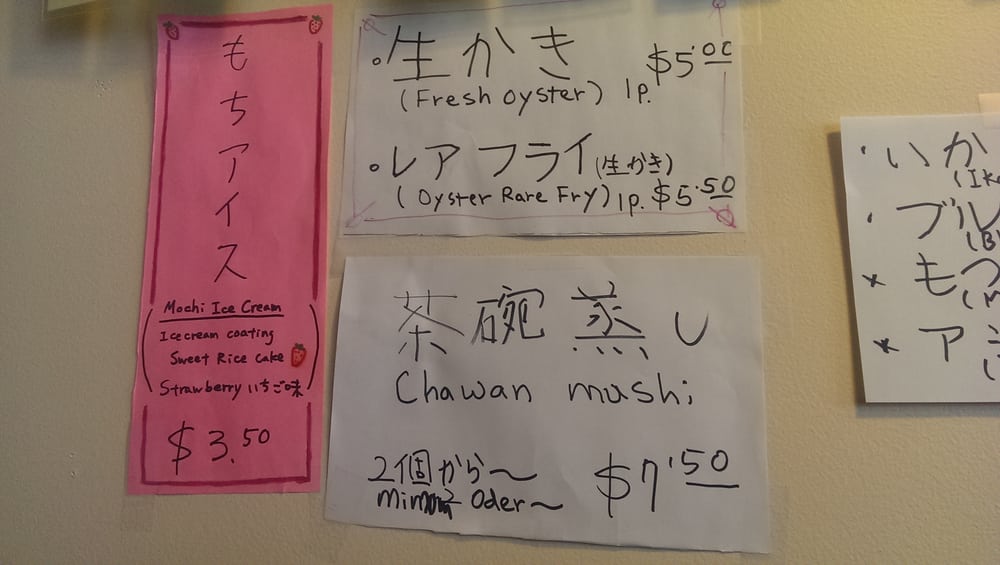 もちアイス
Mochi Ice Cream
Icecream coating
Sweet Rice Cake
Strawberry いちご味
$3.50
・生かき $5.00
(Fresh oyster) 1p.
・レアフライ(生かき)
(Oyster Rare Fry) 1p. $5.50
茶碗蒸し
Chawan mushi
2個から〜
$7.50
Oder〜
・いか
(Ik
・ブル
(B
* もつ
(M
* ア
(